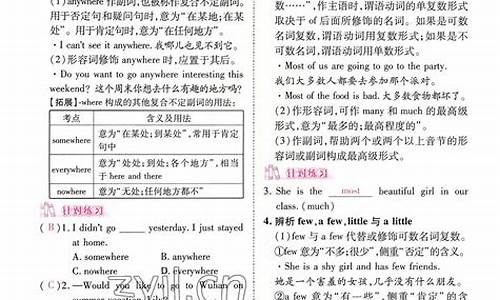 (1)anywhere 作副词,也被称作复合不定副词。
用于否定句和疑问句时,意为“在某地;在某
处”。用于肯定句时,意为“在任何地方”。
· I can't see it anywhere. 我哪儿也见不到它。
(2)形容词修饰 anywhere 时,应置于其后。
· Do you want to go anywhere interesting this
weekend? 这个周末你想去什么有趣的地方吗?
【拓展】-where 构成的其他复合不定副词的用法:
考点 含义及用法
somewhere 意为“在某处;到某处”,常用于肯定句中
everywhere 意为“处处;到处;各个地方”,相当于 here and there
nowhere 意为“无处;任何地方都不”
针对练习
( B )1. I didn't go ____ yesterday. I just stayed
at home.
A. somewhere B. anywhere
C. nowhere D. everywhere
( C )2. —Would you like to go to Wuhan on
数……”,作主语时,谓语动词的单复数形式
取决于 of 后面所修饰的名词。如果是可数
名词复数,谓语动词用复数形式;如果是不可
数名词,谓语动词用单数形式。
· Most of us are going to go to the party.
我们大多数人都要去参加那个派对。
· Most of the food is bad. 大多数食物都坏了。
(2)作形容词,可作 many 和 much 的最高级
形式,意为“最多的;最高程度的”。
(3)作副词,帮助两个或两个以上音节的形
容词或副词构成最高级形式。
针对练习
3. She is the most beautiful girl in our
class. (much)
4. 辨析 few, a few, little 与 a little
(1)few 与 a few 代替或修饰可数名词复数。
①few 意为“不多;很少”,侧重“否定”的含义。
· She is a shy girl and has few friends.
她是一个害羞的女孩,几乎没有什么朋友。
zyjl.cn